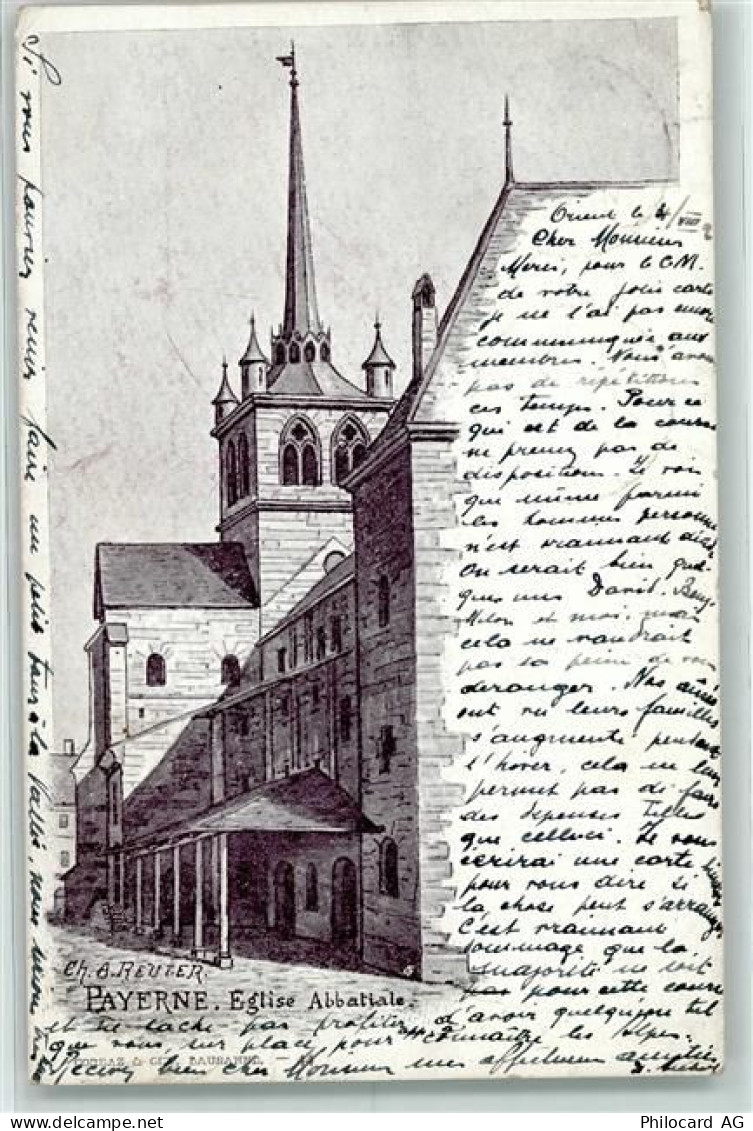 Orient le 4/VIII
Cher Monsieur
Merci, pour le C.M.
de votre jolie carte
je ne l'ai pas encore
communiquée aux
membres. Nous avons
pas de répétitions
ces temps. Pour ce
qui est de la course
ne prenez pas de
disposition. Je vois
que même parmi
les hommes personne
n'est vraiment décidé
On serait bien quel-
ques uns David. Benj.
et moi, mais
cela ne vaudrait
pas la peine de vous
deranger. Nos aînés
ont vu leurs familles
s'augmenté pendant
l'hiver, cela ne leur
permet pas de faire
des depenses telles
que celleci. Je vous
écrirai une carte
pour vous dire si
la chose peut s'arranger
C'est vraiment
dommage que la
majorité ne soit
pas pour cette course
et ne sache pas profiter d'avoir quelqu'un tel
que vous sur place pour connaître les alpes.
bien cher Monsieur mes affectueuses amitiés
Si vous pouviez venir faire un petit tour à la Vallée, nous
Ch. B. REUTER.
PAYERNE. Eglise Abbatiale.
CORBAZ & CIE, LAUSANNE.
Philocard AG